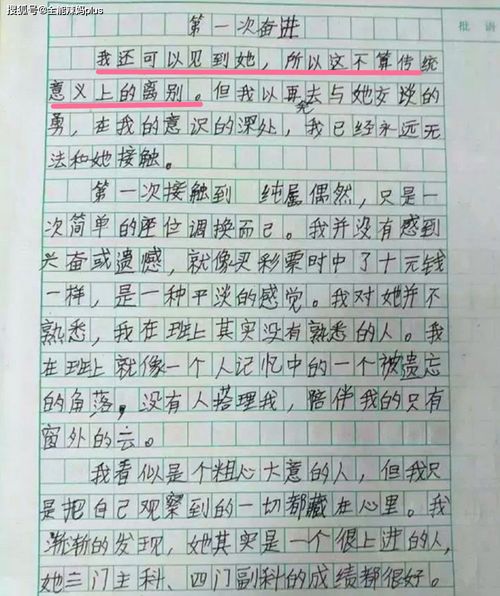 搜狐号@全能辣妈plus
第一次奋进
批语
我还可以见到她，所以这不算传统
意义上的离别。但我以再去与她交谈的
勇，在我的意识的深处，我已经永远无
法和她接触。
第一次接触到 纯属偶然，只是一
次简单的座位调换而已。我并没有感到
兴奋或遗憾，就像买彩票时中了十元钱
一样，是一种平淡的感觉。我对她并不
熟悉，我在班上其实没有熟悉的人。我
在班上就像一个人记忆中的一个被遗忘
的角落，没有人搭理我，陪伴我的只有
窗外的云。
我看似是个粗心大意的人，但我只
是把自己观察到的一切都藏在心里。我
渐渐的发现，她其实是一个很上进的人，
她三门主科、四门副科的成绩都很好。